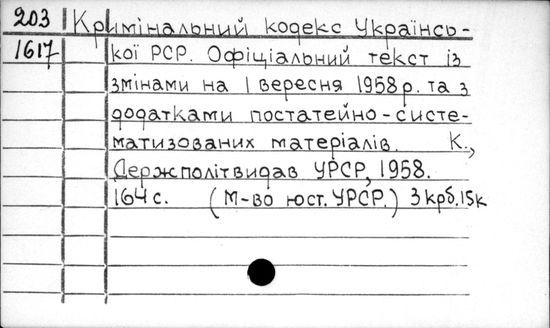 203 Кримінальний кодекс Українсь-
1617 кої РСР. Офіціальний текст із
змінами на 1 вересня 1958р. та з
додатками постатейно-систе-
матизованих матеріалів. К.,
Держполітвидав УРСР, 1958.
164с. (М-во юст. УРСР.) 3крб.15к